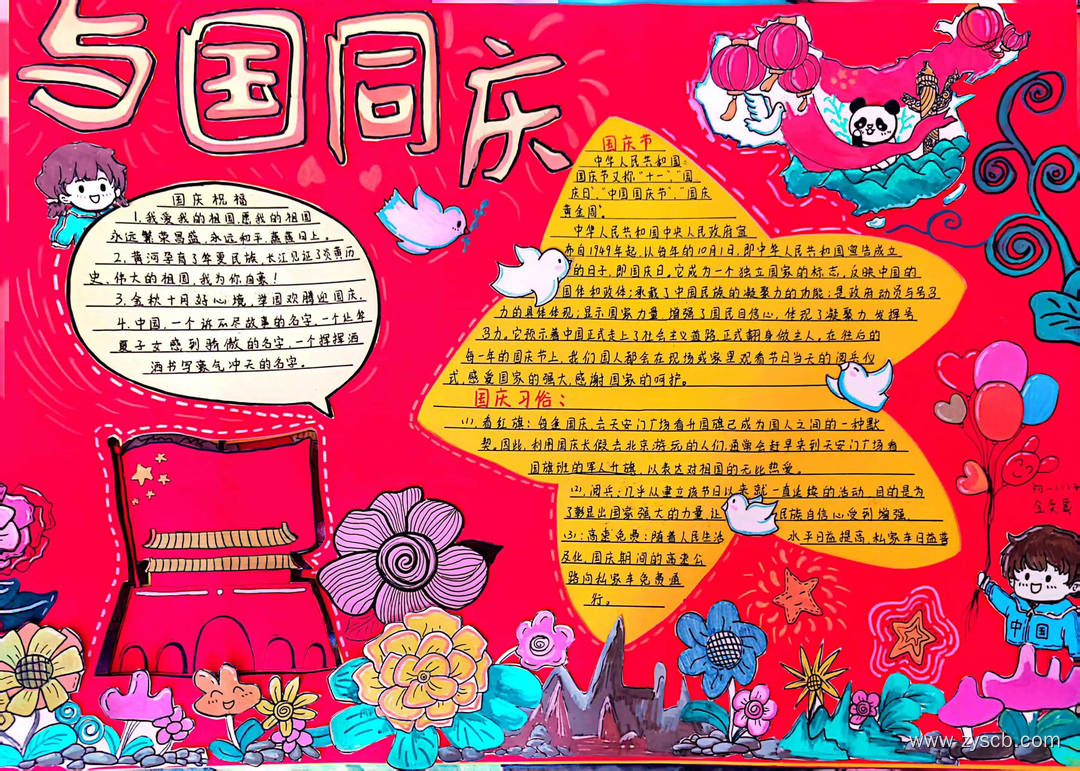 与国同庆
国庆祝福
1.我爱我的祖国,愿我的祖国
永远繁荣昌盛,永远和平,蒸蒸日上。
2.黄河孕育了华夏民族,长江见证了炎黄历
史,伟大的祖国,我为你自豪!
3.金秋十月好心境,举国欢腾迎国庆.
4.中国,一个诉不尽故事的名字,一个让华
夏子女感到骄傲的名字,一个挥挥洒
洒书写豪气冲天的名字。
国庆节
中华人民共和国:
国庆节又称"十一"、"国
庆日"、"中国国庆节"、"国庆
黄金周"。
中华人民共和国中央人民政府宣
布自1949年起,以每年的10月1日,即中华人民共和国宣告成立
的日子,即国庆日,它成为一个独立国家的标志,反映中国的
国体和政体;承载了中国民族的凝聚力的功能;是政府动员与号召
力的具体体现;显示国家力量,增强了国民自信心,体现了凝聚力,发挥号
召力。它预示着中国正式走上了社会主义道路,正式翻身做主人,在往后的
每一年的国庆节上,我们国人都会在现场或家里观看节日当天的阅兵仪
式,感爱国家的强大,感谢国家的呵护。
国庆习俗:
(1).看红旗:每逢国庆,去天安门广场看升国旗已成为国人之间的一种默
契。因此,利用国庆长假去北京游玩的人们,通常会赶早来到天安门广场看
国旗班的军人升旗,以表达对祖国的无比热爱。
(2).阅兵:几乎从建立该节日以来就一直延续的活动,目的是为
了彰显出国家强大的力量,让 民族自信心受到增强。
(3):高速免费:随着人民生活 水平日益提高,私家车日益普
及化,国庆期间的高速公
路向私家车免费通
行。
中国
www.zyscb.com